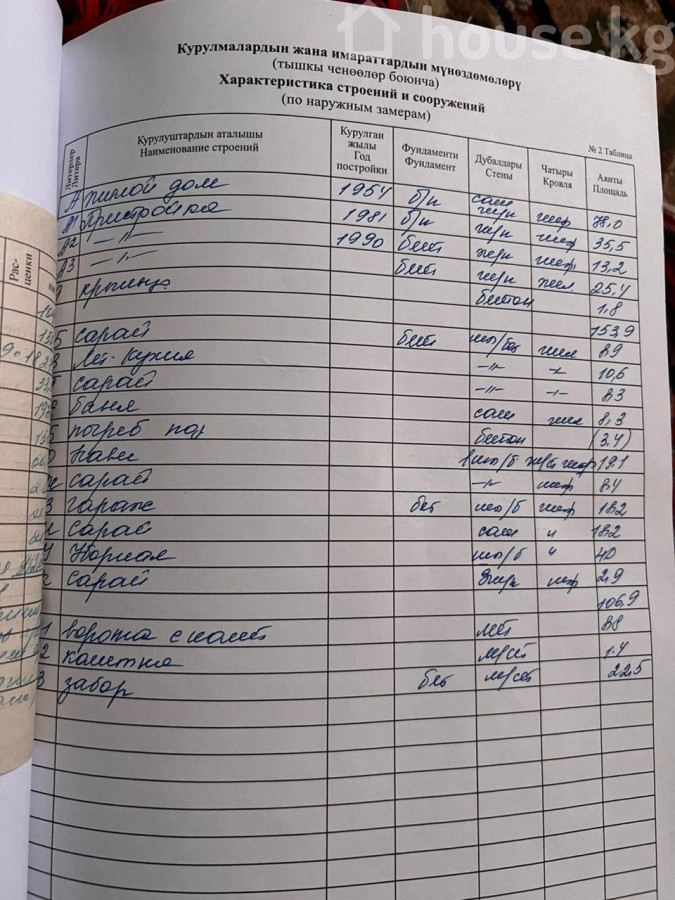 house.kg
Курулмалардын жана имараттардын мүнөздөмөлөрү
(тышкы ченөөлөр боюнча)
Характеристика строений и сооружений
(по наружным замерам)
№ 2 Таблица
Литерлер Литера Курулуштардын аталышы Наименование строений Курулган жылы Год постройки Фундаменти Фундамент Дубалдары Стены Чатыры Кровля Аянты Площадь
Рас-
ценки
А жилой дом 1954 б/н сам 78,0
А1 Пристройка 1981 б/н кирп шиф 35,5
А2 —"— 1990 бет кирп шиф 13,2
А3 —"— бет кирп жел 25,4
крыльцо бетон 1,8
153,9
сарай бет шл/бет жел 8,9
Лет. кухня —"— —"— 10,6
сарай —"— —"— 8,3
баня сам жел 8,3
погреб под бетон (3.4)
Навес 19.1
сарай —"— шиф 8,4
гараж бет шл/б шиф 18,2
сарай сам " 18,2
Уборная шл/б " 4,0
сарай кирп шиф 2,9
106,9
1 ворота с калит мет 8,8
2 калитка м/сет 1.4
3 забор бет м/сет 22,5